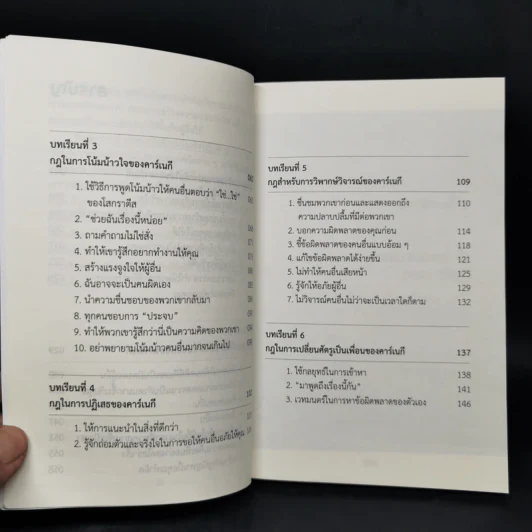 บทเรียนที่ 3
กฎในการโน้มน้าวใจของคาร์เนกี
1. ใช้วิธีการพูดโน้มน้าวให้คนอื่นตอบว่า "ใช่...ใช่"
ของโสกราตีส
2. "ช่วยฉันเรื่องนี้หน่อย"
3. ถามคำถามไม่ใช่สั่ง
4. ทำให้เขารู้สึกอยากทำงานให้คุณ
5. สร้างแรงจูงใจให้ผู้อื่น
6. ฉันอาจจะเป็นคนผิดเอง
7. นำความชื่นชอบของพวกเขากลับมา
8. ทุกคนชอบการ "ประจบ"
9. ทำให้พวกเขารู้สึกว่านี่เป็นความคิดของพวกเขา
10. อย่าพยายามโน้มน้าวคนอื่นมากจนเกินไป
บทเรียนที่ 4
กฎในการปฏิเสธของคาร์เนกี
1. ให้การแนะนำในสิ่งที่ดีกว่า
2. รู้จักถ่อมตัวและจริงใจในการขอให้คนอื่นอภัยให้คุณ
บทเรียนที่ 5
กฎสำหรับการวิพากษ์วิจารณ์ของคาร์เนกี 109
1. ชื่นชมพวกเขาก่อนและแสดงออกถึง 110
ความปลาบปลื้มที่มีต่อพวกเขา
2. บอกความผิดพลาดของคุณก่อน 114
3. ชี้ข้อผิดพลาดของคนอื่นแบบอ้อม ๆ 118
4. แก้ไขข้อผิดพลาดได้ง่ายขึ้น 121
5. ไม่ทำให้คนอื่นเสียหน้า 125
6. รู้จักให้อภัยผู้อื่น 129
7. ไม่วิจารณ์คนอื่นไม่ว่าจะเป็นเวลาใดก็ตาม 132
บทเรียนที่ 6
กฎในการเปลี่ยนศัตรูเป็นเพื่อนของคาร์เนกี 137
1. ใช้กลยุทธ์ในการเข้าหา 138
2. "มาพูดถึงเรื่องนี้กัน" 141
3. เวทมนตร์ในการหาข้อผิดพลาดของตัวเอง 146